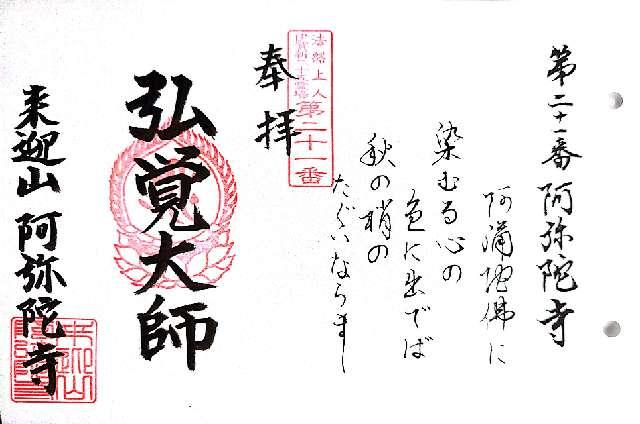 第二十一番 阿弥陀寺
阿弥陀佛に
染むる心の
色に出でば
秋の梢の
たぐいならまし
法然上人
二十五霊場
第二十一番
奉拝
弘覚大師
来迎山 阿弥陀寺